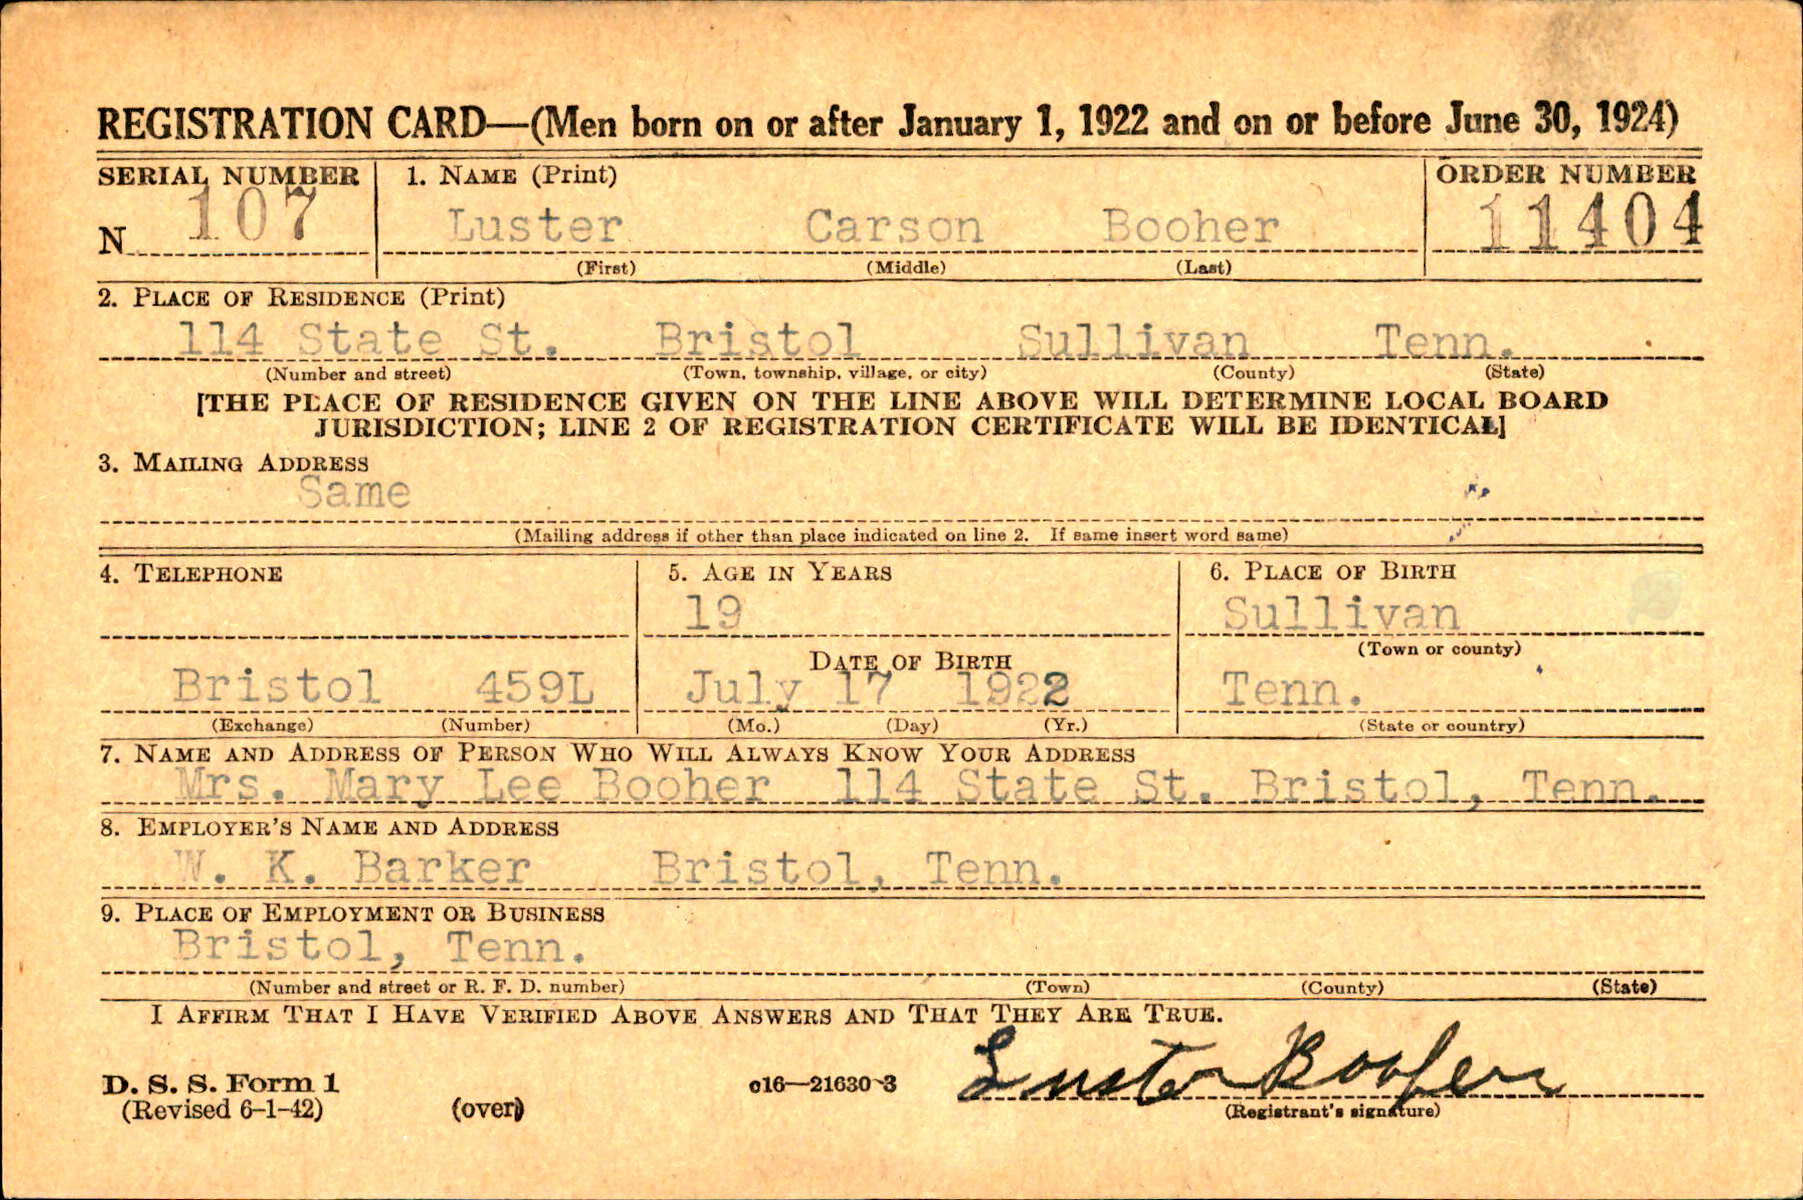 REGISTRATION CARD—(Men born on or after January 1, 1922 and on or before June 30, 1924)
SERIAL NUMBER 1. NAME (Print) ORDER NUMBER
N 107 Luster Carson Booher 11404
(First) (Middle) (Last)
2. PLACE OF RESIDENCE (Print)
114 State St. Bristol Sullivan Tenn.
(Number and street) (Town, township, village, or city) (County) (State)
[THE PLACE OF RESIDENCE GIVEN ON THE LINE ABOVE WILL DETERMINE LOCAL BOARD
JURISDICTION; LINE 2 OF REGISTRATION CERTIFICATE WILL BE IDENTICAL]
3. MAILING ADDRESS
Same
(Mailing address if other than place indicated on line 2. If same insert word same)
4. TELEPHONE 5. AGE IN YEARS 6. PLACE OF BIRTH
19 Sullivan
DATE OF BIRTH (Town or county)
Bristol 459L July 17 1922 Tenn.
(Exchange) (Number) (Mo.) (Day) (Yr.) (State or country)
7. NAME AND ADDRESS OF PERSON WHO WILL ALWAYS KNOW YOUR ADDRESS
Mrs. Mary Lee Booher 114 State St. Bristol, Tenn.
8. EMPLOYER'S NAME AND ADDRESS
W. K. Barker Bristol, Tenn.
9. PLACE OF EMPLOYMENT OR BUSINESS
Bristol, Tenn.
(Number and street or R. F. D. number) (Town) (County) (State)
I AFFIRM THAT I HAVE VERIFIED ABOVE ANSWERS AND THAT THEY ARE TRUE.
D. S. S. Form 1 c16—21630-3 Luster Booher
(Revised 6-1-42) (over) (Registrant's signature)